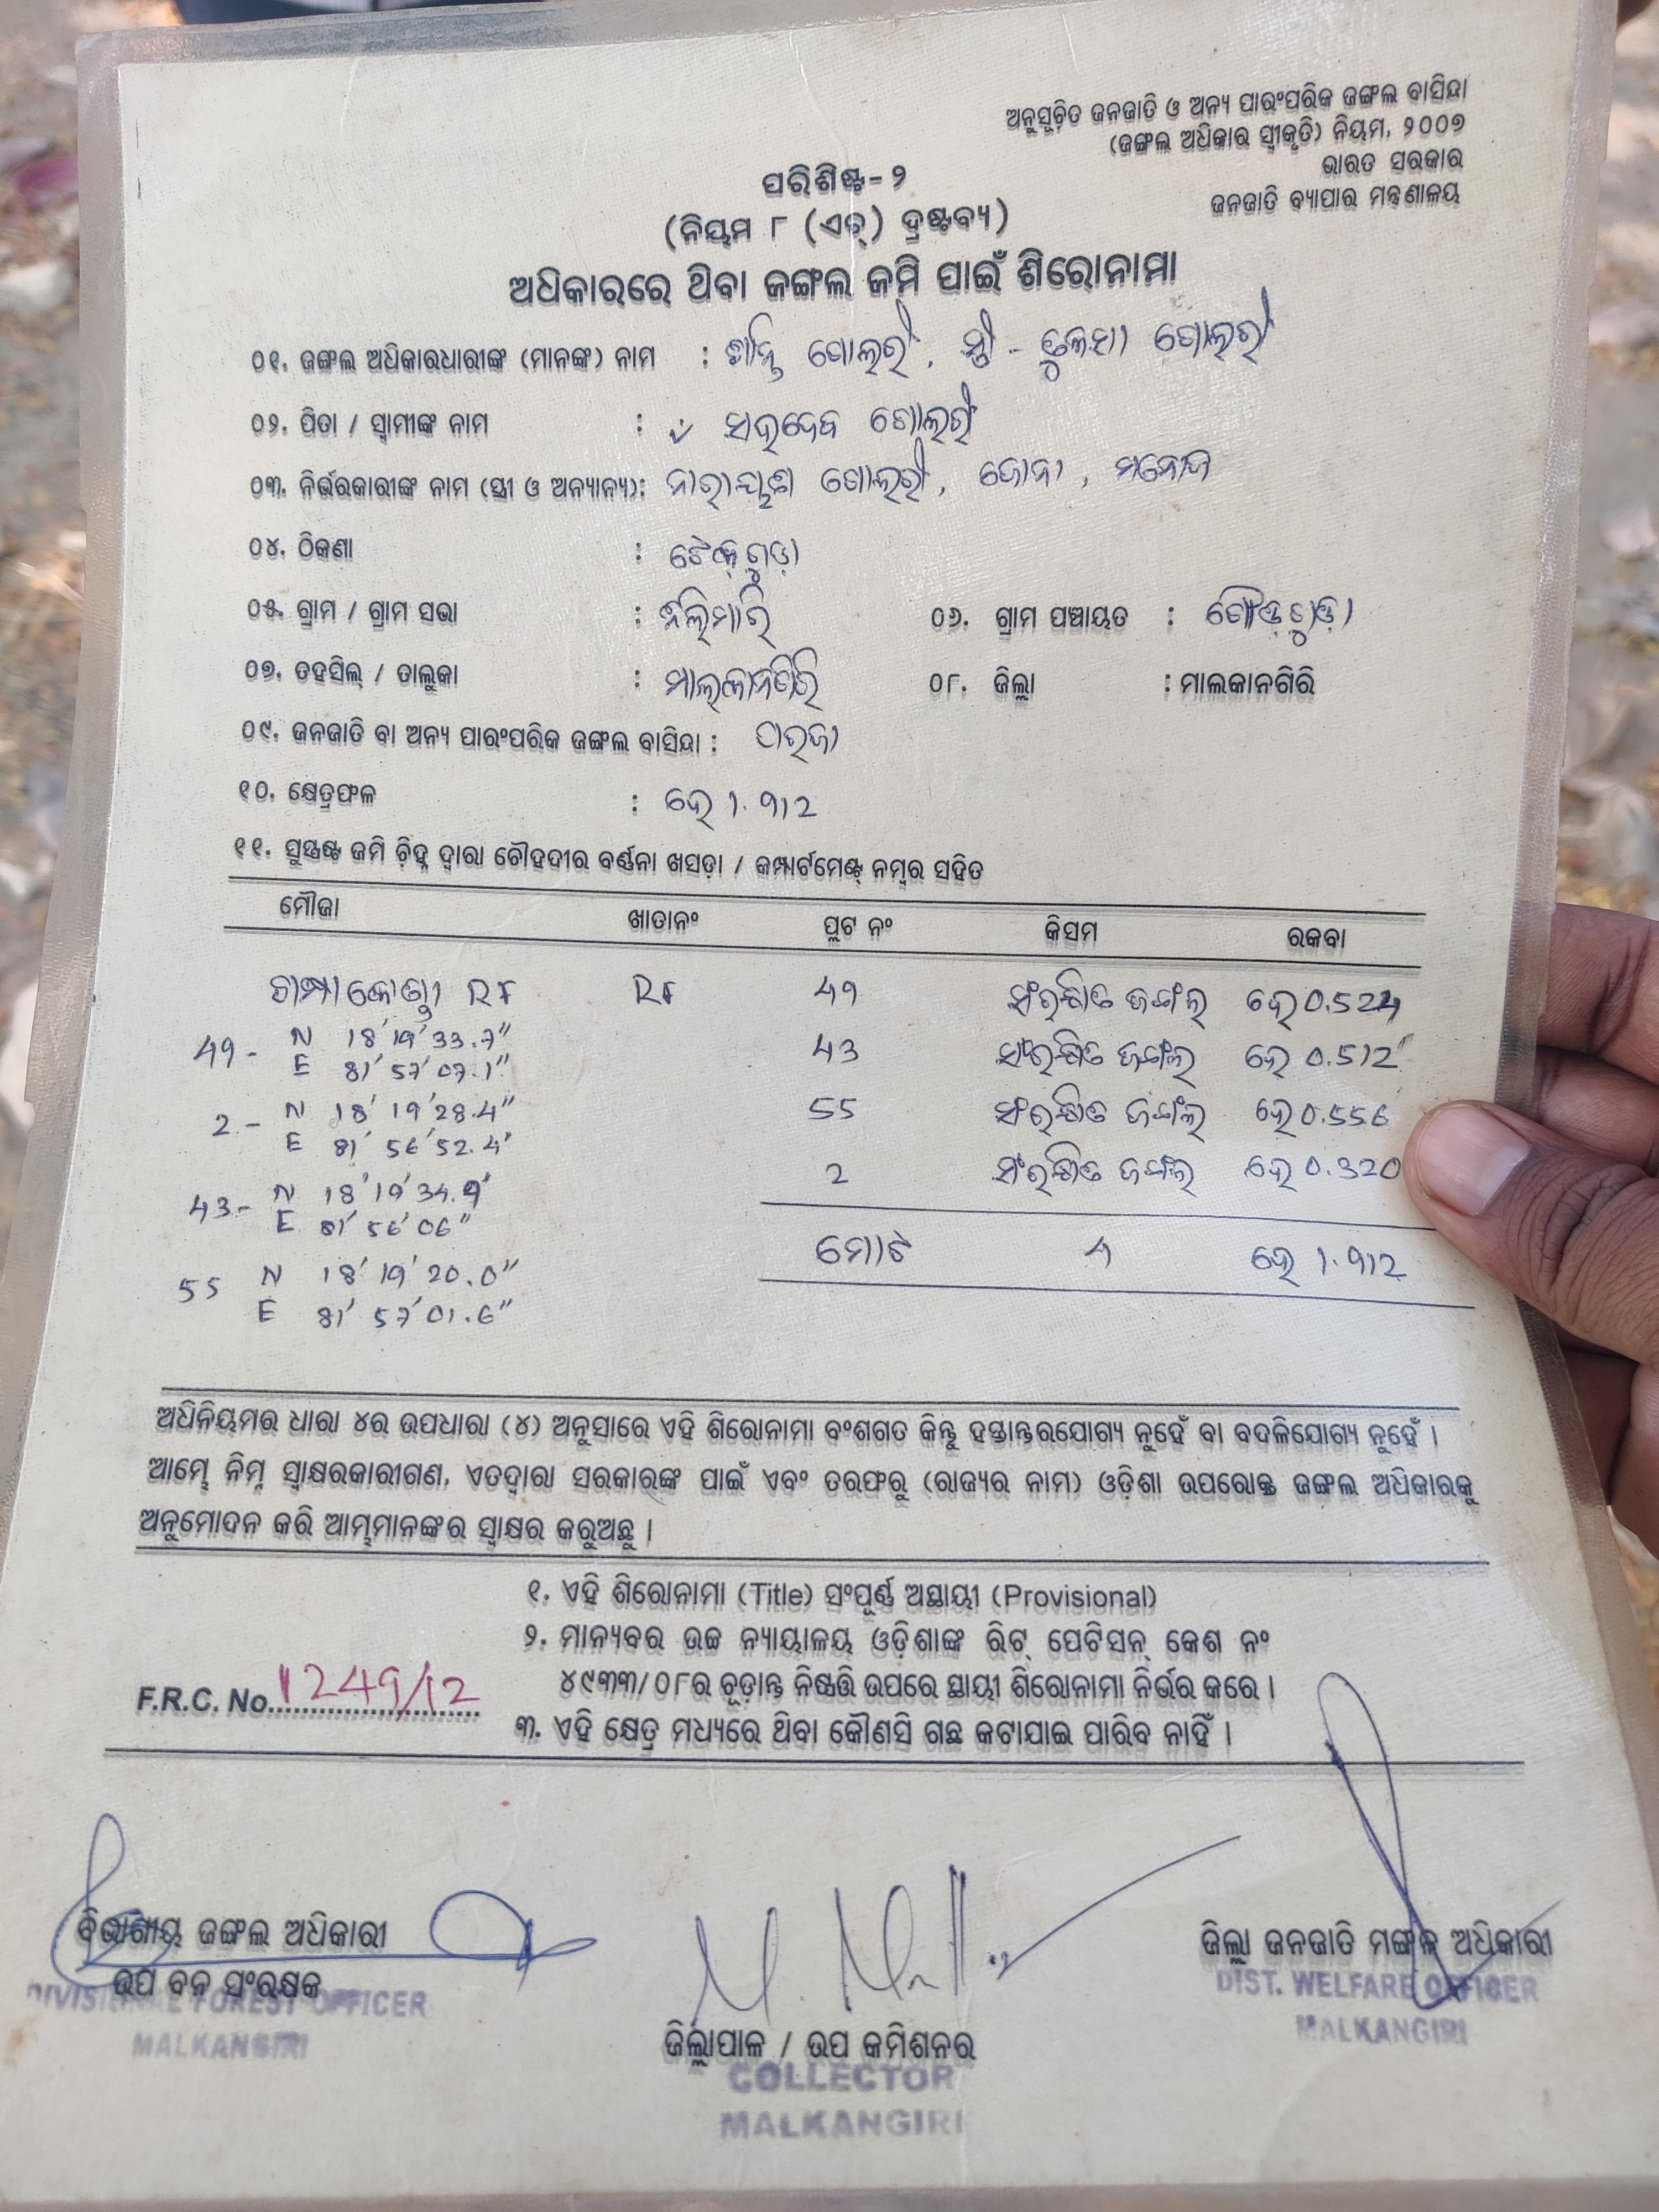 ଅନୁସୂଚିତ ଜନଜାତି ଓ ଅନ୍ୟ ପାରଂପରିକ ଜଙ୍ଗଲ ବାସିନ୍ଦା
(ଜଙ୍ଗଲ ଅଧିକାର ସ୍ୱୀକୃତି) ନିୟମ, ୨୦୦୭
ଭାରତ ସରକାର
ଜନଜାତି ବ୍ୟାପାର ମନ୍ତ୍ରଣାଳୟ
ପରିଶିଷ୍ଟ-୨
(ନିୟମ ୮ (ଏଚ୍) ଦ୍ରଷ୍ଟବ୍ୟ)
ଅଧିକାରରେ ଥିବା ଜଙ୍ଗଲ ଜମି ପାଇଁ ଶିରୋନାମା
୦୧. ଜଙ୍ଗଲ ଅଧିକାରଧାରୀଙ୍କ (ମାନଙ୍କ) ନାମ :
୦୨. ପିତା / ସ୍ୱାମୀଙ୍କ ନାମ :
୦୩. ନିର୍ଭରକାରୀଙ୍କ ନାମ (ସ୍ତ୍ରୀ ଓ ଅନ୍ୟାନ୍ୟ): ନାରାୟଣ ଗୋଲରୀ, ଜୋନା, ମନୋଜ
୦୪. ଠିକଣା : ଟେକଗୁଡ଼ା
୦୫. ଗ୍ରାମ / ଗ୍ରାମ ସଭା : ନିଲିମାରି ୦୬. ଗ୍ରାମ ପଞ୍ଚାୟତ : ଗୌଡ଼ଗୁଡ଼ା
୦୭. ତହସିଲ୍ / ତାଲୁକା : ମାଲକାନଗିରି ୦୮. ଜିଲ୍ଲା : ମାଲକାନଗିରି
୦୯. ଜନଜାତି ବା ଅନ୍ୟ ପାରଂପରିକ ଜଙ୍ଗଲ ବାସିନ୍ଦା : ପରଜା
୧୦. କ୍ଷେତ୍ରଫଳ : ହେ 1.912
୧୧. ସୁସ୍ପଷ୍ଟ ଜମି ଚିହ୍ନ ଦ୍ୱାରା ଚୌହଦୀର ବର୍ଣ୍ଣନା ଖସଡ଼ା / କମ୍ପାର୍ଟମେଣ୍ଟ୍ ନମ୍ବର ସହିତ
ମୌଜା ଖାତାନଂ ପ୍ଲଟ ନଂ କିସମ ରକବା
ଚାମ୍ପାକୋଣ୍ଡା RF RF 49 ସଂରକ୍ଷିତ ଜଙ୍ଗଲ ହେ 0.524
49 - N 18' 19' 33.7"
E 81' 57' 07.1" 43 ସଂରକ୍ଷିତ ଜଙ୍ଗଲ ହେ 0.512"
2 - N 18' 19' 28.4" 55 ସଂରକ୍ଷିତ ଜଙ୍ଗଲ ହେ 0.556
E 81' 56' 52.4" 2 ସଂରକ୍ଷିତ ଜଙ୍ଗଲ ହେ 0.320
43 - N 18' 19' 34.9"
E 81' 56' 06" ମୋଟ 4 ହେ 1.912
55 N 18' 19' 20.0"
E 81' 57' 01.6"
ଅଧିନିୟମର ଧାରା ୪ର ଉପଧାରା (୪) ଅନୁସାରେ ଏହି ଶିରୋନାମା ବଂଶଗତ କିନ୍ତୁ ହସ୍ତାନ୍ତରଯୋଗ୍ୟ ନୁହେଁ ବା ବଦଳିଯୋଗ୍ୟ ନୁହେଁ ।
ଆମ୍ଭେ ନିମ୍ନ ସ୍ୱାକ୍ଷରକାରୀଗଣ, ଏତଦ୍ଦ୍ୱାରା ସରକାରଙ୍କ ପାଇଁ ଏବଂ ତରଫରୁ (ରାଜ୍ୟର ନାମ) ଓଡ଼ିଶା ଉପରୋକ୍ତ ଜଙ୍ଗଲ ଅଧିକାରକୁ
ଅନୁମୋଦନ କରି ଆମ୍ଭମାନଙ୍କର ସ୍ୱାକ୍ଷର କରୁଅଛୁ ।
୧. ଏହି ଶିରୋନାମା (Title) ସଂପୂର୍ଣ୍ଣ ଅସ୍ଥାୟୀ (Provisional)
୨. ମାନ୍ୟବର ଉଚ୍ଚ ନ୍ୟାୟାଳୟ ଓଡ଼ିଶାଙ୍କ ରିଟ୍ ପେଟିସନ୍ କେଶ ନଂ
୪୯୩୩/୦୮ର ଚୂଡ଼ାନ୍ତ ନିଷ୍ପତ୍ତି ଉପରେ ସ୍ଥାୟୀ ଶିରୋନାମା ନିର୍ଭର କରେ ।
F.R.C. No. 1249/12
୩. ଏହି କ୍ଷେତ୍ର ମଧ୍ୟରେ ଥିବା କୌଣସି ଗଛ କଟାଯାଇ ପାରିବ ନାହିଁ ।
ବିଭାଗୀୟ ଜଙ୍ଗଲ ଅଧିକାରୀ
ଉପ ବନ ସଂରକ୍ଷକ
DIVISIONAL FOREST OFFICER
MALKANGIRI
ଜିଲ୍ଲାପାଳ / ଉପ କମିଶନର
COLLECTOR
MALKANGIRI
ଜିଲ୍ଲା ଜନଜାତି ମଙ୍ଗଳ ଅଧିକାରୀ
DIST. WELFARE OFFICER
MALKANGIRI